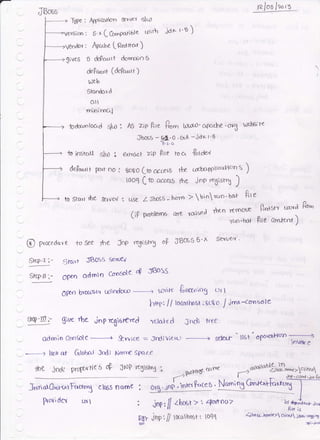 JBoss
12/05/2013
Type: Application server s/w
version: 5.x (Compatible with Jdk 1.5)
vendor: Apache (Red Hat)
gives 5 default domains
default (default)
web
standard
all
minimal
to download s/w: As zip file from www.apache.org website
JBoss - 5.1.0.GA - Jdk 1.5
to install s/w: extract zip file to a folder
default port no: 8080 (to access the webapplications)
1099 (to access the Jnp registry)
to start the server: use Z Jboss-home > \bin\run.bat file
(if problems are raised then remove findstr word from
run.bat file content)
procedure to see the Jnp registry of JBoss 5.x server.
Step-I:- Start JBoss server
Step-II:- open admin console of JBoss
open browser window → write following url
http://localhost:8080/jmx-console
Step-III:- give the jnp registered related Jndi tree
admin console → service = JndiView → select "list" operation → invoke
→ look at Global Jndi Name space
the Jndi properties of Jnp registry:
package name
available in
Initial Context Factory class name: org.jnp.interfaces.NamingContextFactory
Provider url : jnp://<host>:<port no>
Eg: jnp://localhost:1099